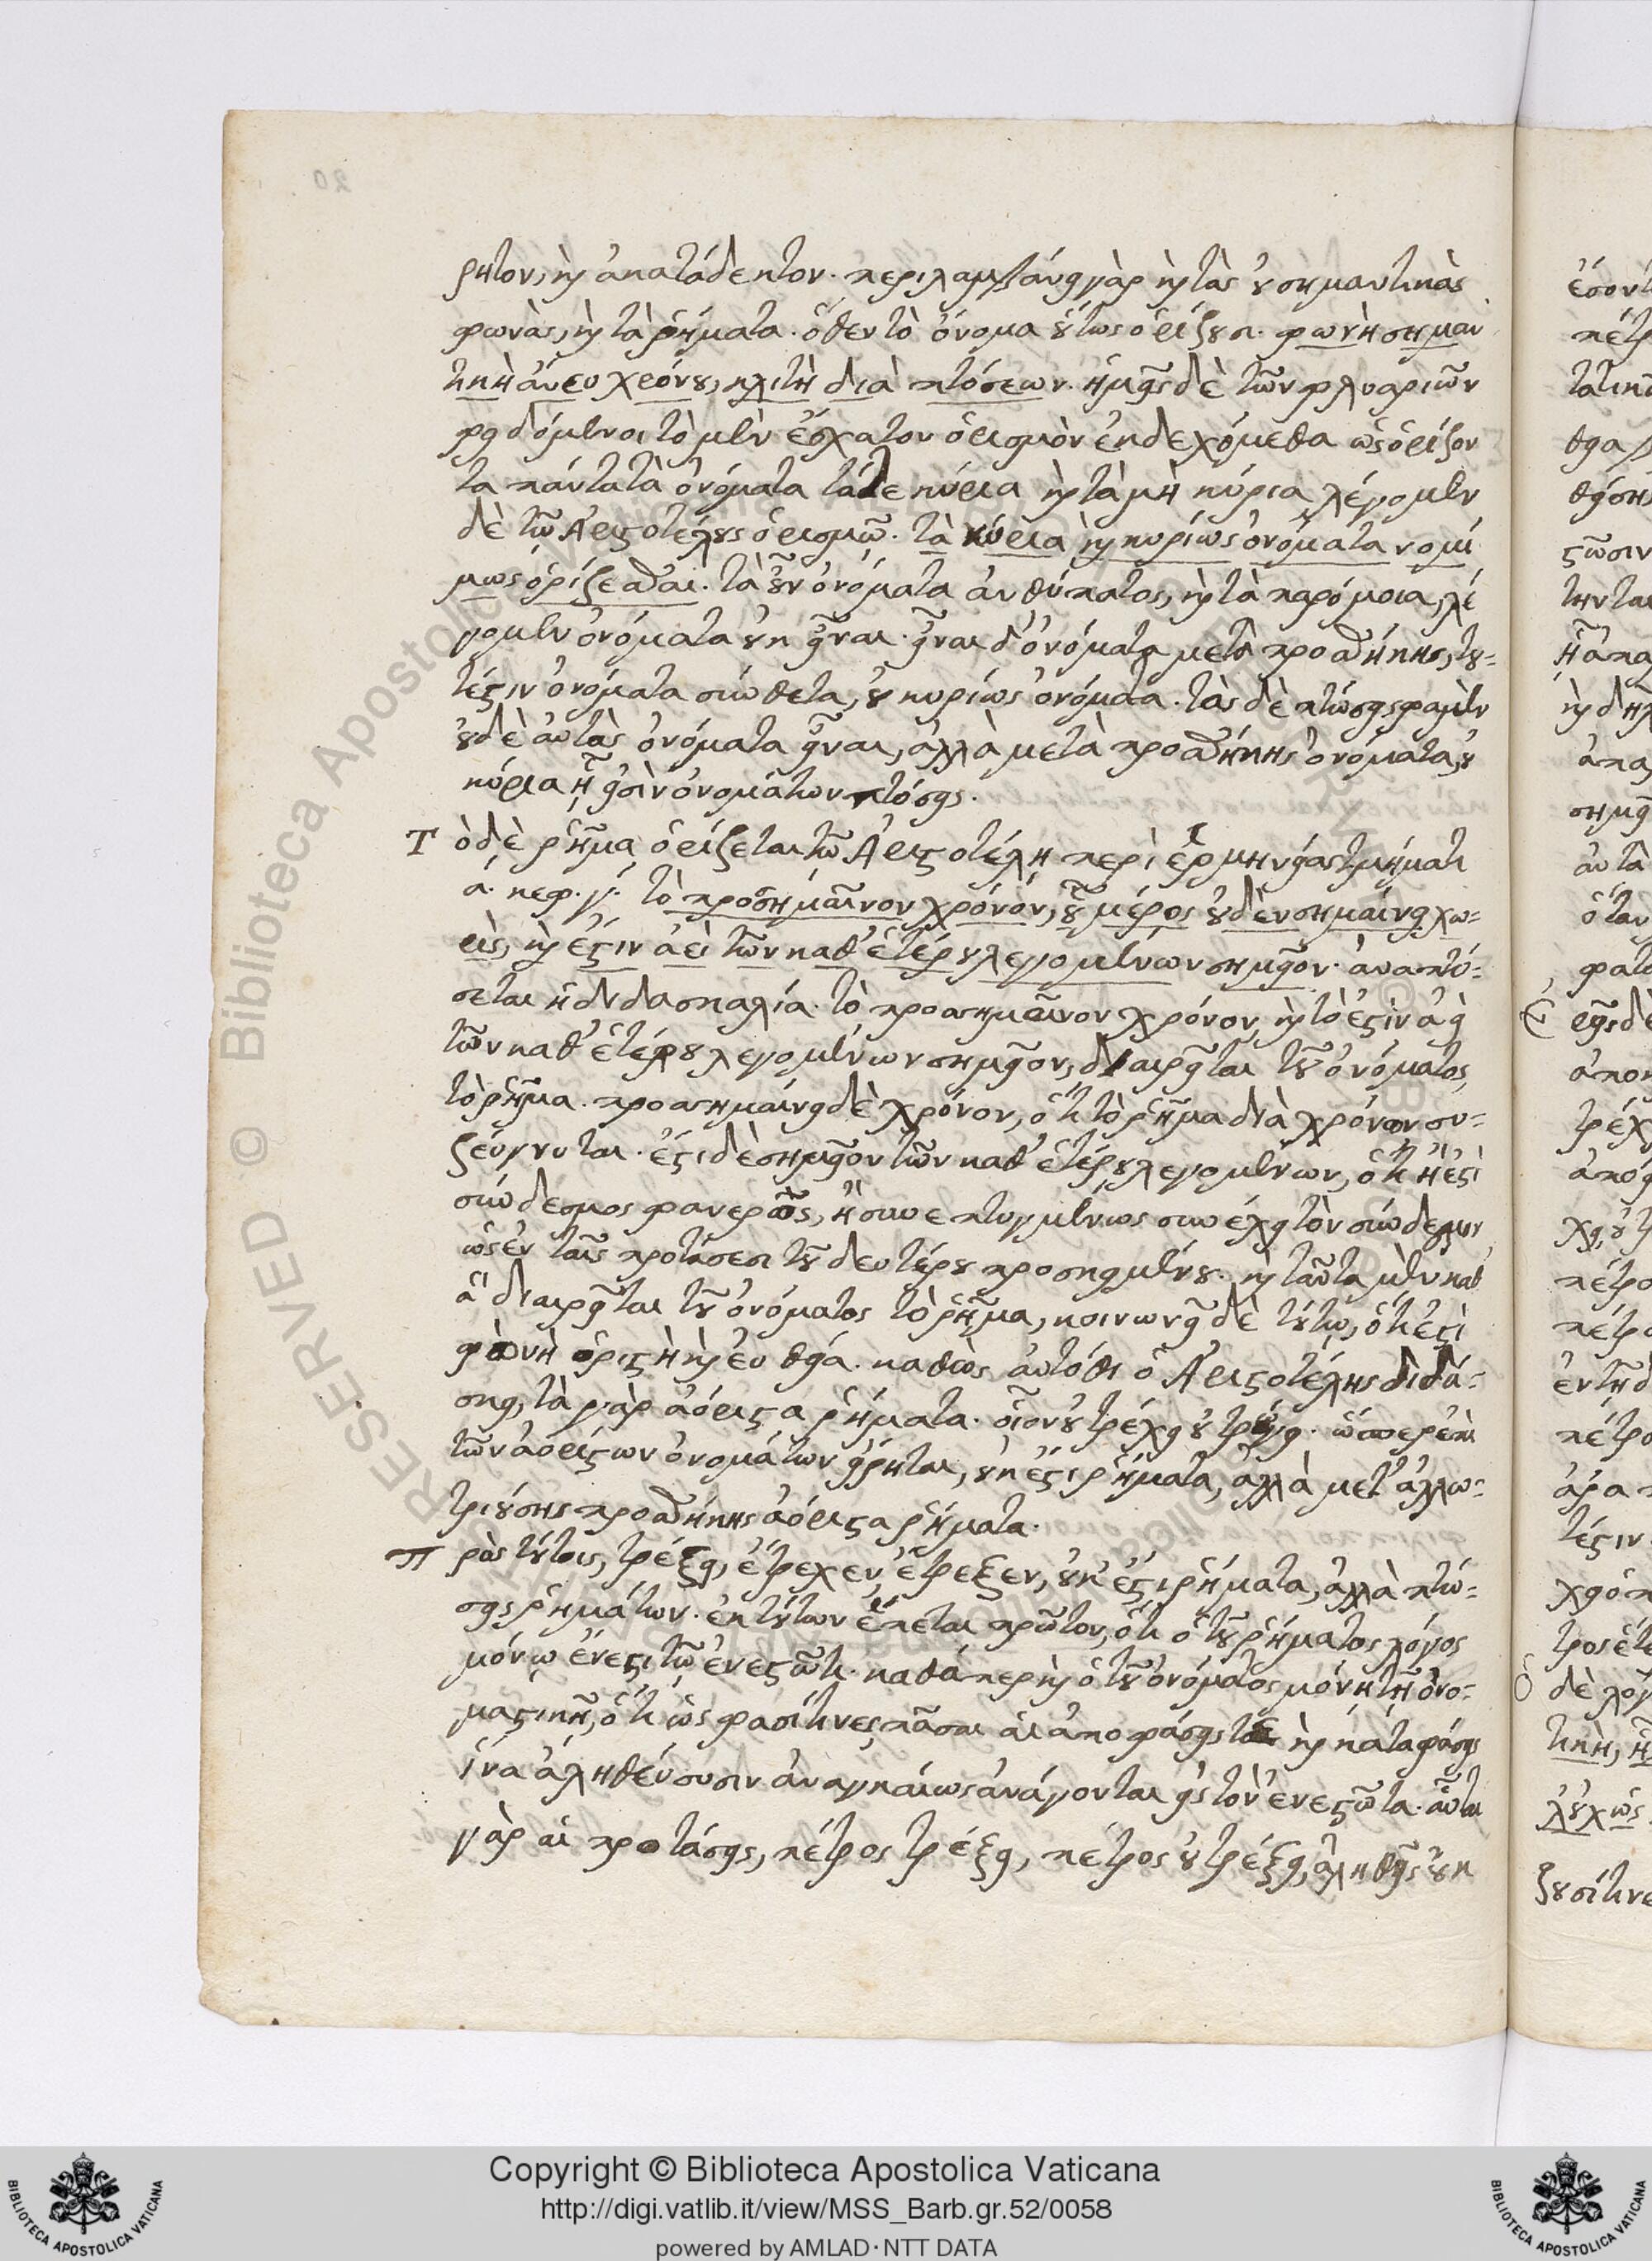 20
ρητον, καὶ ἀκατάδεκτον. περιλαμβάνει γὰρ καὶ τὰς οὐ σημαντικὰς
φωνὰς, καὶ τὰ ῥήματα. ὅθεν τὸ ὄνομα οὕτως ὁρίζουσι. φωνὴ σημαν
τικὴ ἄνευ χρόνου, κλιτὴ διὰ πτόσεων. ἡμεῖς δὲ τῶν φλυαριῶν
φειδόμενοι τὸ μὲν ἔσχατον ὁρισμὸν ἐκδεχόμεθα ὡς ὁρίζον
τα πάντα τὰ ὀνόματα τάτε κύρια καὶ τὰ μὴ κύρια, λέγομεν
δὲ τῶ Ἀριστοτέλους ὁρισμῶ. τὰ κύρια καὶ κυρίως ὀνόματα νομί
μως ὁρίζεσθαι. τὰ οὖν ὀνόματα ἀνθύπατος, καὶ τὰ παρόμοια, λέ
γομεν ὀνόματα οὐκ εἶναι. εἶναι δ' ὀνόματα μετὰ προσθήκης, του=
τέστιν ὀνόματα σύνθετα, οὐ κυρίως ὀνόματα. τὰς δὲ πτώσεις φαμὲν
οὐδὲ αὐτὰς ὀνόματα εἶναι, ἀλλὰ μετὰ προσθήκης ὀνόματα, οὐ
κύρια ἢ εἰσὶν ὀνομάτων πτόσεις.
Τ ὸ δὲ ῥῆμα ὁρίζεται τῶ Ἀριστοτέλη περὶ ἑρμηνείας τμήματι
ά. κεφ. γ΄. τὸ προσημαῖνον χρόνον, οὗ μέρος οὐδὲν σημαίνει χω=
ρὶς, καὶ ἔστιν ἀεὶ τῶν καθ' ἑτέρου λεγομένων σημεῖον. ἀναπτύ=
σεται ἡ διδασκαλία. τὸ προσημαῖνον χρόνον, καὶ τὸ ἐστὶν ἀεὶ
τῶν καθ' ἑτέρου λεγομένων σημεῖον, διαιρεῖται τοῦ ὀνόματος,
τὸ ῥῆμα. προσημαίνει δὲ χρόνον, ὅτι τὸ ῥῆμα διὰ χρόνων συ=
ζεύγνυται. ἔστι δὲ σημεῖον τῶν καθ' ἑτέρου λεγομένων, ὅτι ἢ ἐστὶ
σύνδεσμος φανερῶς, ἢ συνεπτυγμένως συνέχει τὸν σύνδεσμον
ὡς ἐν ταῖς προτάσεσι τοῦ δευτέρου προσκειμένου. καὶ ταῦτα μὲν καθ'
ἃ διαιρεῖται τοῦ ὀνόματος τὸ ῥῆμα, κοινωνεῖ δὲ τούτω, ὅτι ἐστὶ
φωνὴ ὁριστὴ καὶ εὐθεία. καθὼς αὐτόθι ὁ Ἀριστοτέλης διδά=
σκει, τὰ γὰρ ἀόριστα ῥήματα. οἷον οὐ τρέχει οὐ τρώγει. ὥσπερ ἐπὶ
τῶν ἀορίστων ὀνομάτων εἴρηται, οὐκ ἔστι ῥήματα, ἀλλὰ μετ' ἀλλω=
τριούσης προσθήκης ἀόριστα ῥήματα.
Π ρὸς τούτοις, τρέξει, ἔτρεχεν, ἔτρεξεν, οὐκ ἔστι ῥήματα, ἀλλὰ πτώ=
σεις ῥημάτων. ἐκ τούτων ἕπεται πρῶτον, ὅτι ὁ τοῦ ῥήματος λόγος
μόνω ἔνεστι τῶ ἐνεστῶτι. καθάπερ καὶ ὁ τοῦ ὀνόματος μόνη τῆ ὀνο=
μαστικῆ, ὅτι ὥς φασί τινες πᾶσαι αἱ ἀποφάσεις καὶ καταφάσεις
ἵνα ἀληθεύσωσιν ἀναγκαίως ἀνάγονται εἰς τὸν ἐνεστῶτα. αὗται
γὰρ αἱ προτάσεις, πέτρος τρέξει, πέτρος οὐ τρέξει, ἀληθεῖς οὐκ
Copyright © Biblioteca Apostolica Vaticana
http://digi.vatlib.it/view/MSS_Barb.gr.52/0058
powered by AMLAD·NTT DATA
BIBLIOTECA APOSTOLICA VATICANA
BIBLIOTECA APOSTOLICA VATICANA